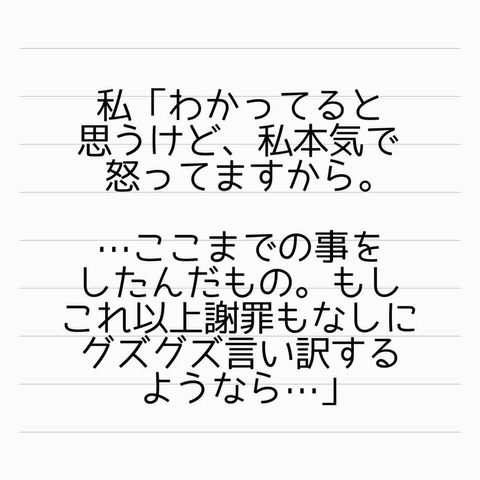 私「わかってると
思うけど、私本気で
怒ってますから。
…ここまでの事を
したんだもの。もし
これ以上謝罪もなしに
グズグズ言い訳する
ようなら…」